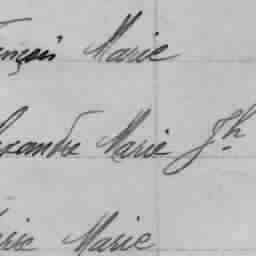 ançois Marie
lexandre Marie Jh
éric Marie